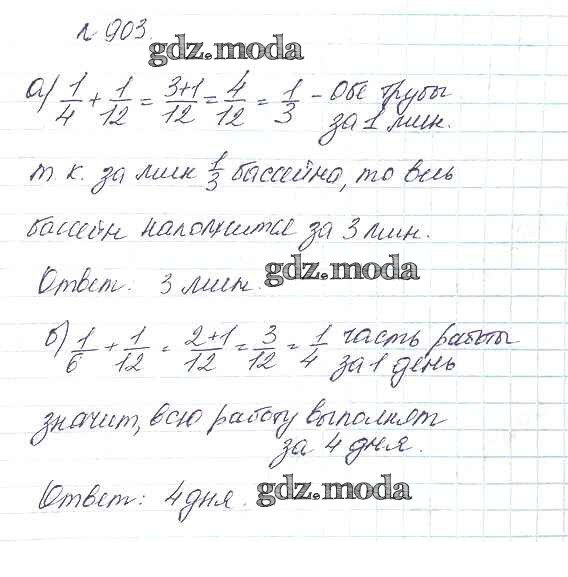 № 903.
gdz.moda
а) 1/4 + 1/12 = 3+1/12 = 4/12 = 1/3 - Обе трубы
за 1 мин.
т. к. за мин 1/3 бассейна, то весь
бассейн наполнится за 3 мин.
Ответ: 3 мин. gdz.moda
б) 1/6 + 1/12 = 2+1/12 = 3/12 = 1/4 часть работы
за 1 день
значит, всю работу выполнят
за 4 дня.
Ответ: 4 дня. gdz.moda